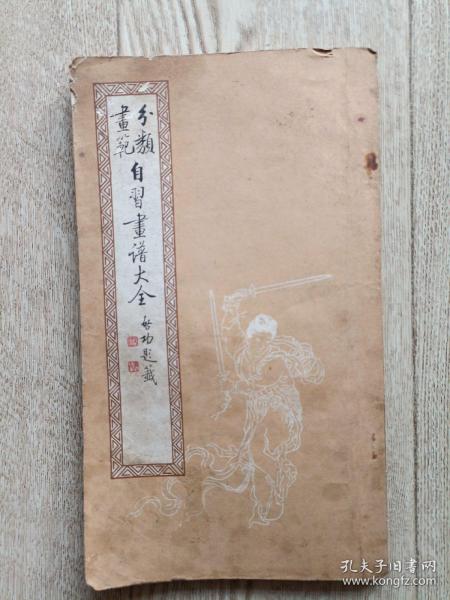 分類
畫範
自習畫譜大全
啟功題籤
孔夫子旧书网
www.kongfz.com